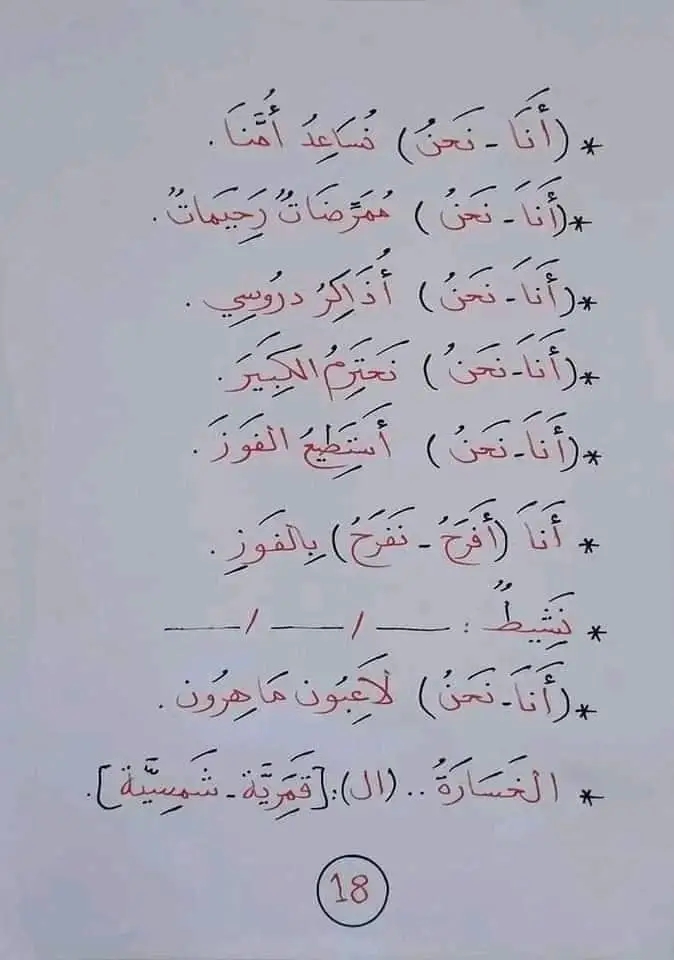 * (أَنَا - نَحنُ) نُسَاعِدُ أُمَّنَا.
* (أَنَا - نَحَنُ) مُمَرِّضَاتٌ رَحِيمَاتٌ.
* (أَنَا - نَحَنُ) أُذَاكِرُ دروُسِي.
* (أَنَا - نَحَنُ) نَحتَرِمُ الكَبِيَرَ.
* (أَنَا - نَحَنُ) أَستَطِيعُ الفَوَزَ.
* أَنَا (أَفرَحُ - نَفرَحُ) بِالفَوَزِ.
* نَشِيطٌ : ___ / ___ / ___
* (أَنَا - نَحَنُ) لَاعِبُون مَاهِرُون.
* الخَسَارَةُ .. (ال): [قَمَرِيَّة - شَمسِيَّة].
18